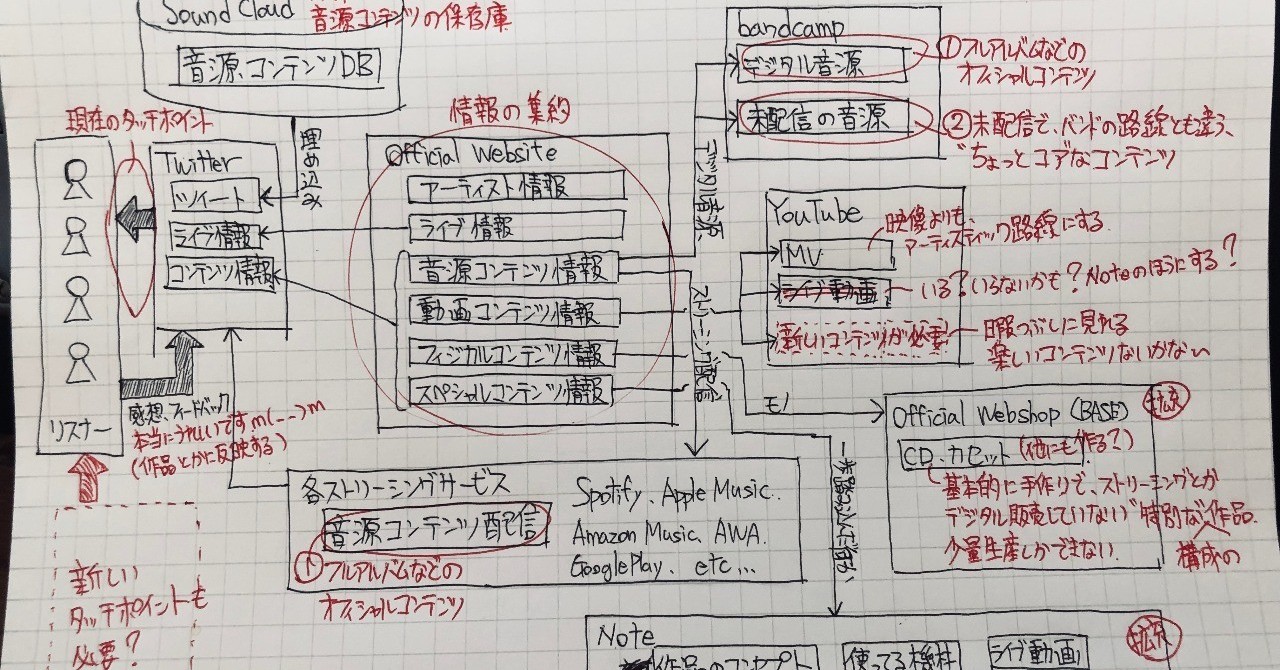 Sound Cloud
音源コンテンツの保存庫
音源コンテンツDB
現在のタッチポイント
埋め込み
Twitter
ツイート
ライブ情報
コンテンツ情報
リスナー
感想、フィードバック
本当にうれしいですm(__)m
(作品とかに反映する)
新しい
タッチポイントも
必要?
情報の集約
Official Website
アーティスト情報
ライブ情報
音源コンテンツ情報
動画コンテンツ情報
フィジカルコンテンツ情報
スペシャルコンテンツ情報
デジタル音源
ストリーミング配信
モノ
一歩踏み込んだ
各ストリーミングサービス
音源コンテンツ配信
①フルアルバムなどの
オフィシャルコンテンツ
Spotify、Apple Music.
Amazon Music、AWA.
GooglePlay、etc...
bandcamp
デジタル音源
未配信の音源
①フルアルバムなどの
オフィシャルコンテンツ
②未配信で、バンドの路線とも違う、
"ちょっとコアなコンテンツ
YouTube
MV
映像よりも、
アーティスティック路線にする
ライブ動画
いる?いらないかも?Noteのほうにする?
新しいコンテンツが必要
暇つぶしに見れる
楽しいコンテンツないかない
Official Webshop (BASE)
拡充
CD、カセット(他にも作る?)
基本的に手作りで、ストリーミングとか
デジタル販売していない"特別な作品.
構成の
少量生産しかできない.
Note
拡充
作品のコンセプト
使ってる機材
ライブ動画